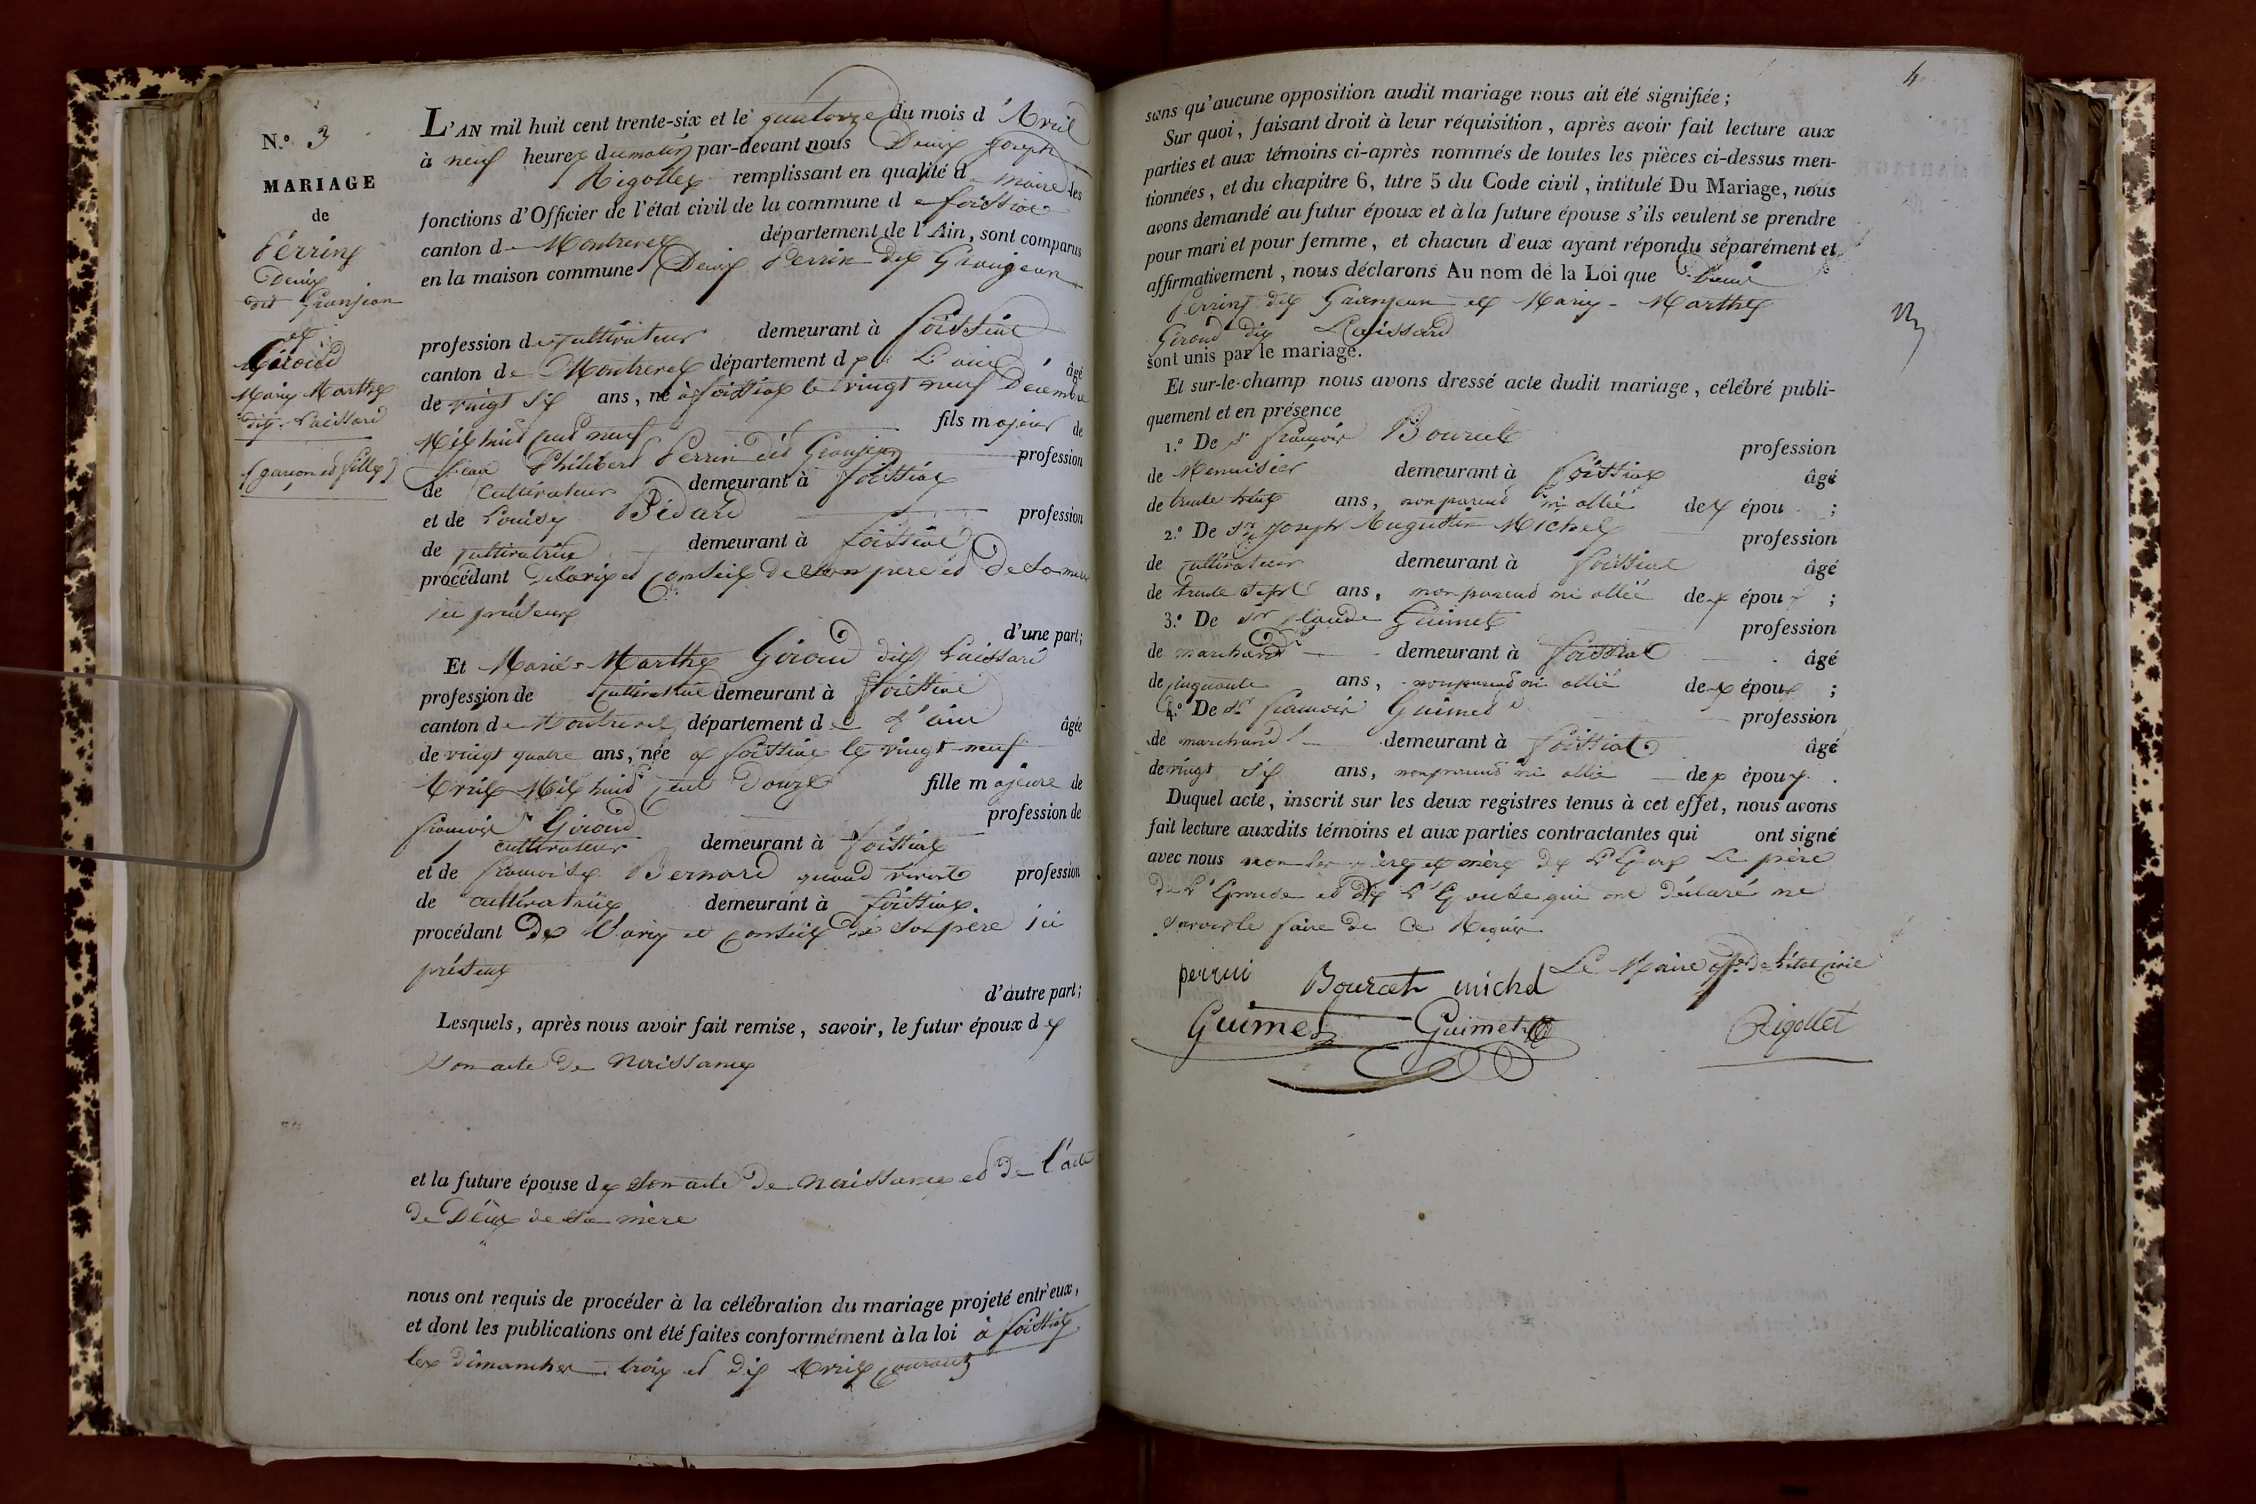 N.º 3
MARIAGE
de
Perrin
Denis
dit Granjean
et
Giroud
Marie Marthe
dit Laissard
(garçon et fille)
L'AN mil huit cent trente-six et le quatorze du mois d'Avril
à neuf heures du matin par-devant nous Denis Joseph
Rigollet remplissant en qualité de maire les
fonctions d'Officier de l'état civil de la commune de foissiat
canton de Montrevel département de l'Ain, sont comparus
en la maison commune Denis Perrin dit Granjean
profession de cultivateur demeurant à foissiat
canton de Montrevel département de L'ain âgé
de vingt six ans, né à foissiat le vingt neuf Décembre
Mil huit cent neuf fils majeur de
Jean Philibert Perrin dit Granjean profession
de cultivateur demeurant à foissiat
et de Louise Bédard profession
de cultivatrice demeurant à foissiat
procédant de l'avis et conseil de son père et de sa mère
ici présents
d'une part;
Et Marie-Marthe Giroud dit Laissard
profession de cultivatrice demeurant à foissiat
canton de Montrevel département de L'ain âgée
de vingt quatre ans, née à foissiat le vingt neuf
Avril Mil huit cent douze fille majeure de
françois Giroud profession de
cultivateur demeurant à foissiat
et de françoise Bernard quand vivait profession
de cultivatrice demeurant à foissiat
procédant de l'avis et conseil de son père ici
présent
d'autre part;
Lesquels, après nous avoir fait remise, savoir, le futur époux de
son acte de naissance
et la future épouse de son acte de naissance et de l'acte
de Décès de sa mère
nous ont requis de procéder à la célébration du mariage projeté entr'eux,
et dont les publications ont été faites conformément à la loi à foissiat
les dimanches trois et dix Avril courant
4
sans qu'aucune opposition audit mariage nous ait été signifiée;
Sur quoi, faisant droit à leur réquisition, après avoir fait lecture aux
parties et aux témoins ci-après nommés de toutes les pièces ci-dessus men-
tionnées, et du chapitre 6, titre 5 du Code civil, intitulé Du Mariage, nous
avons demandé au futur époux et à la future épouse s'ils veulent se prendre
pour mari et pour femme, et chacun d'eux ayant répondu séparément et
affirmativement, nous déclarons Au nom de la Loi que Denis
Perrin dit Granjean et Marie-Marthe
Giroud dit Laissard
sont unis par le mariage.
Et sur-le-champ nous avons dressé acte dudit mariage, célébré publi-
quement et en présence
1.º De Sr françois Bourcet profession
de Menuisier demeurant à foissiat âgé
de trente ans, non parent ni allié des épou ;
2.º De Sr Joseph Augustin Michel profession
de cultivateur demeurant à foissiat âgé
de trente sept ans, non parent ni allié des époux ;
3.º De Sr Claude Guimet profession
de marchand demeurant à foissiat âgé
de cinquante ans, non parent ni allié des époux ;
4.º De Sr françois Guimet profession
de marchand demeurant à foissiat âgé
de vingt six ans, non parent ni allié des époux .
Duquel acte, inscrit sur les deux registres tenus à cet effet, nous avons
fait lecture auxdits témoins et aux parties contractantes qui ont signé
avec nous non les père et mère de L'Epoux Le père
de L'Epouse et de L'Epouse qui ont déclaré ne
savoir le faire de ce Requis
perrin Bourcet michel Le Maire off. de l'état Civil
Guimet Guimet Rigollet